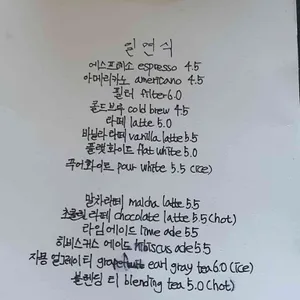 필연식
에스프레소 espresso 4.5
아메리카노 americano 4.5
필터 filter 6.0
콜드브루 cold brew 4.5
라떼 latte 5.0
바닐라라떼 vanilla latte 5.5
플랫화이트 flat white 5.0
푸어화이트 pour white 5.5 (ice)
말차라떼 malcha latte 5.5
초콜릿 라떼 chocolate latte 5.5 (hot)
라임에이드 lime ade 5.5
히비스커스 에이드 hibiscus ade 5.5
자몽 얼그레이 티 grapefruit earl gray tea 6.0 (ice)
블렌딩 티 blending tea 5.0 (hot)